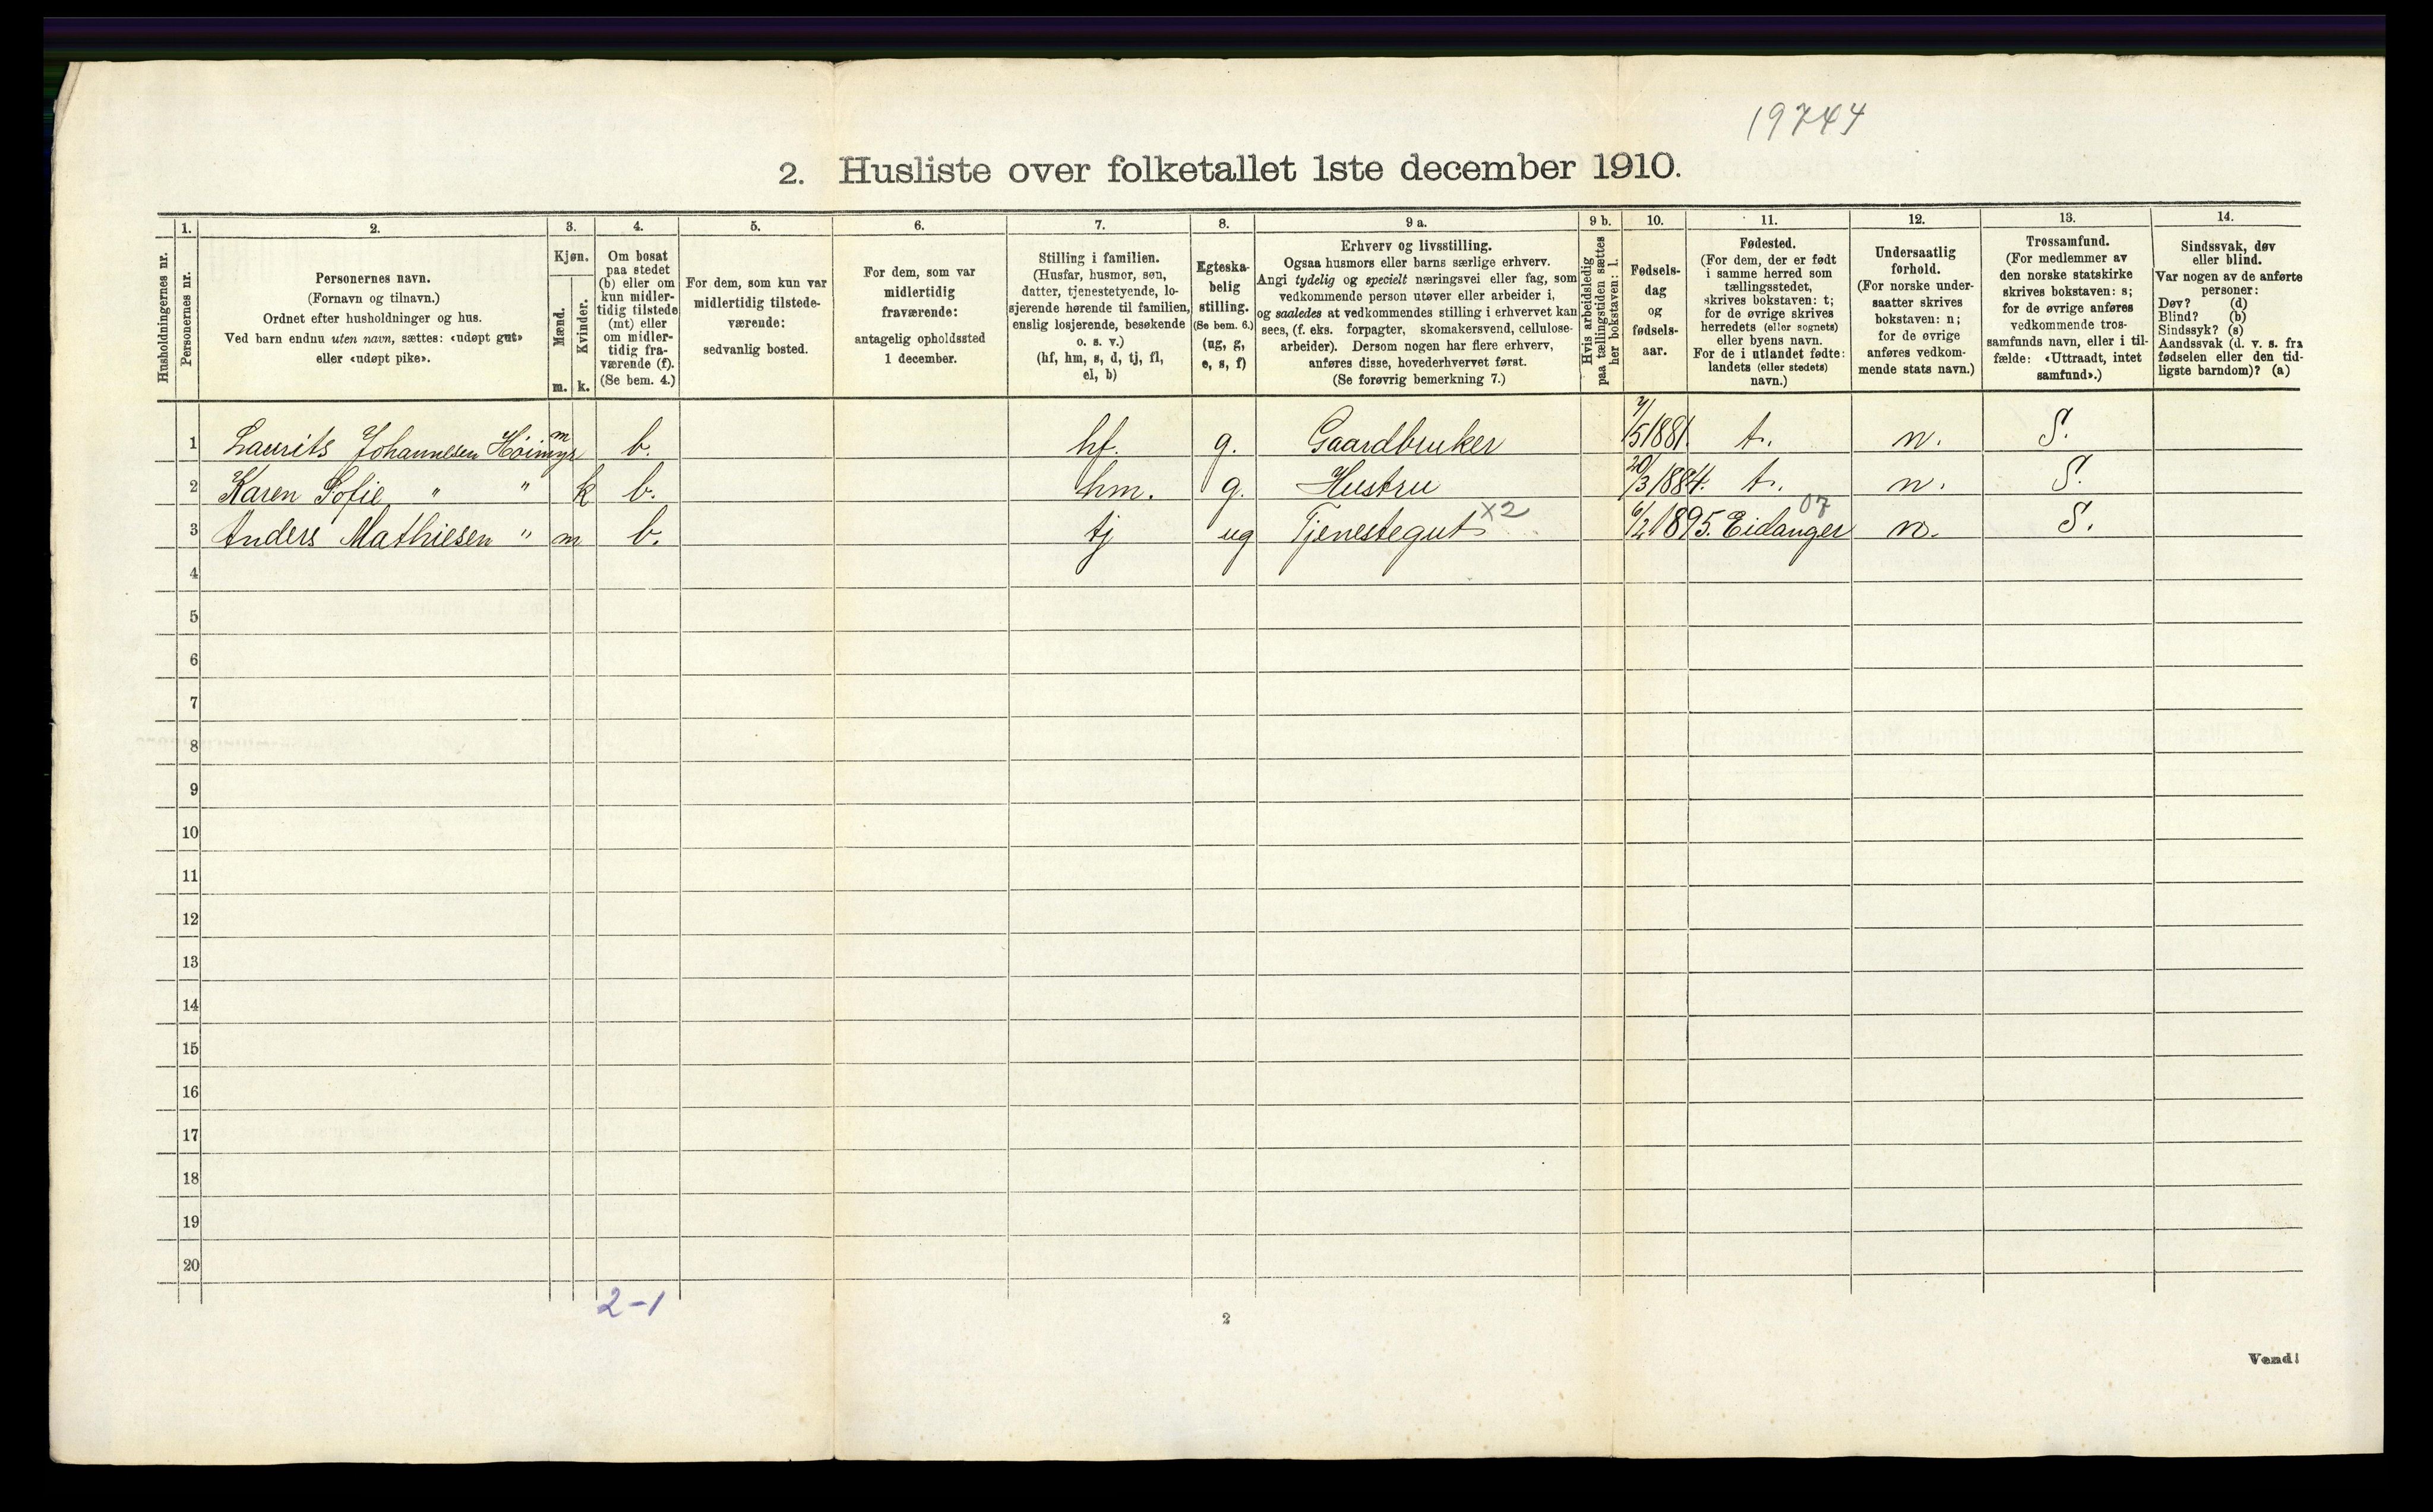 19744
2. Husliste over folketallet 1ste december 1910.
Husholdningernes nr.
1.
Personernes nr.
2.
Personernes navn.
(Fornavn og tilnavn.)
Ordnet efter husholdninger og hus.
Ved barn endnu uten navn, sættes: «udøpt gut»
eller «udøpt pike».
3.
Kjøn.
Mænd.
m.
Kvinder.
k.
4.
Om bosat
paa stedet
(b) eller om
kun midler-
tidig tilstede
(mt) eller
om midler-
tidig fra-
værende (f).
(Se bem. 4.)
5.
For dem, som kun var
midlertidig tilstede-
værende:
sedvanlig bosted.
6.
For dem, som var
midlertidig
fraværende:
antagelig opholdssted
1 december.
7.
Stilling i familien.
(Husfar, husmor, søn,
datter, tjenestetyende, lo-
sjerende hørende til familien,
enslig losjerende, besøkende
o. s. v.)
(hf, hm, s, d, tj, fl,
el, b)
8.
Egteska-
belig
stilling.
(Se bem. 6.)
(ug, g,
e, s, f)
9 a.
Erhverv og livsstilling.
Ogsaa husmors eller barns særlige erhverv.
Angi tydelig og specielt næringsvei eller fag, som
vedkommende person utøver eller arbeider i,
og saaledes at vedkommendes stilling i erhvervet kan
sees, (f. eks. forpagter, skomakersvend, cellulose-
arbeider). Dersom nogen har flere erhverv,
anføres disse, hovederhvervet først.
(Se forøvrig bemerkning 7.)
9 b.
Hvis arbeidsledig
paa tællingstiden sættes
her bokstaven: l.
10.
Fødsels-
dag
og
fødsels-
aar.
11.
Fødested.
(For dem, der er født
i samme herred som
tællingsstedet,
skrives bokstaven: t;
for de øvrige skrives
herredets (eller sognets)
eller byens navn.
For de i utlandet fødte:
landets (eller stedets)
navn.)
12.
Undersaatlig
forhold.
(For norske under-
saatter skrives
bokstaven: n;
for de øvrige
anføres vedkom-
mende stats navn.)
13.
Trossamfund.
(For medlemmer av
den norske statskirke
skrives bokstaven: s;
for de øvrige anføres
vedkommende tros-
samfunds navn, eller i til-
fælde: «Uttraadt, intet
samfund».)
14.
Sindssvak, døv
eller blind.
Var nogen av de anførte
personer:
Døv? (d)
Blind? (b)
Sindssyk? (s)
Aandssvak (d. v. s. fra
fødselen eller den tid-
ligste barndom)? (a)
1 Laurits Johannesen Höimyr m b. hf. g. Gaardbruker 7/5 1881. t. n. S.
2 Karen Sofie " " k b. hm. g. Hustru 20/3 1884. t. n. S.
3 Anders Mathiesen " m b. tj ug Tjenestegut x2 6/2 1895. Eidanger 07 n. S.
4
5
6
7
8
9
10
11
12
13
14
15
16
17
18
19
20
2-1
2
Vend!